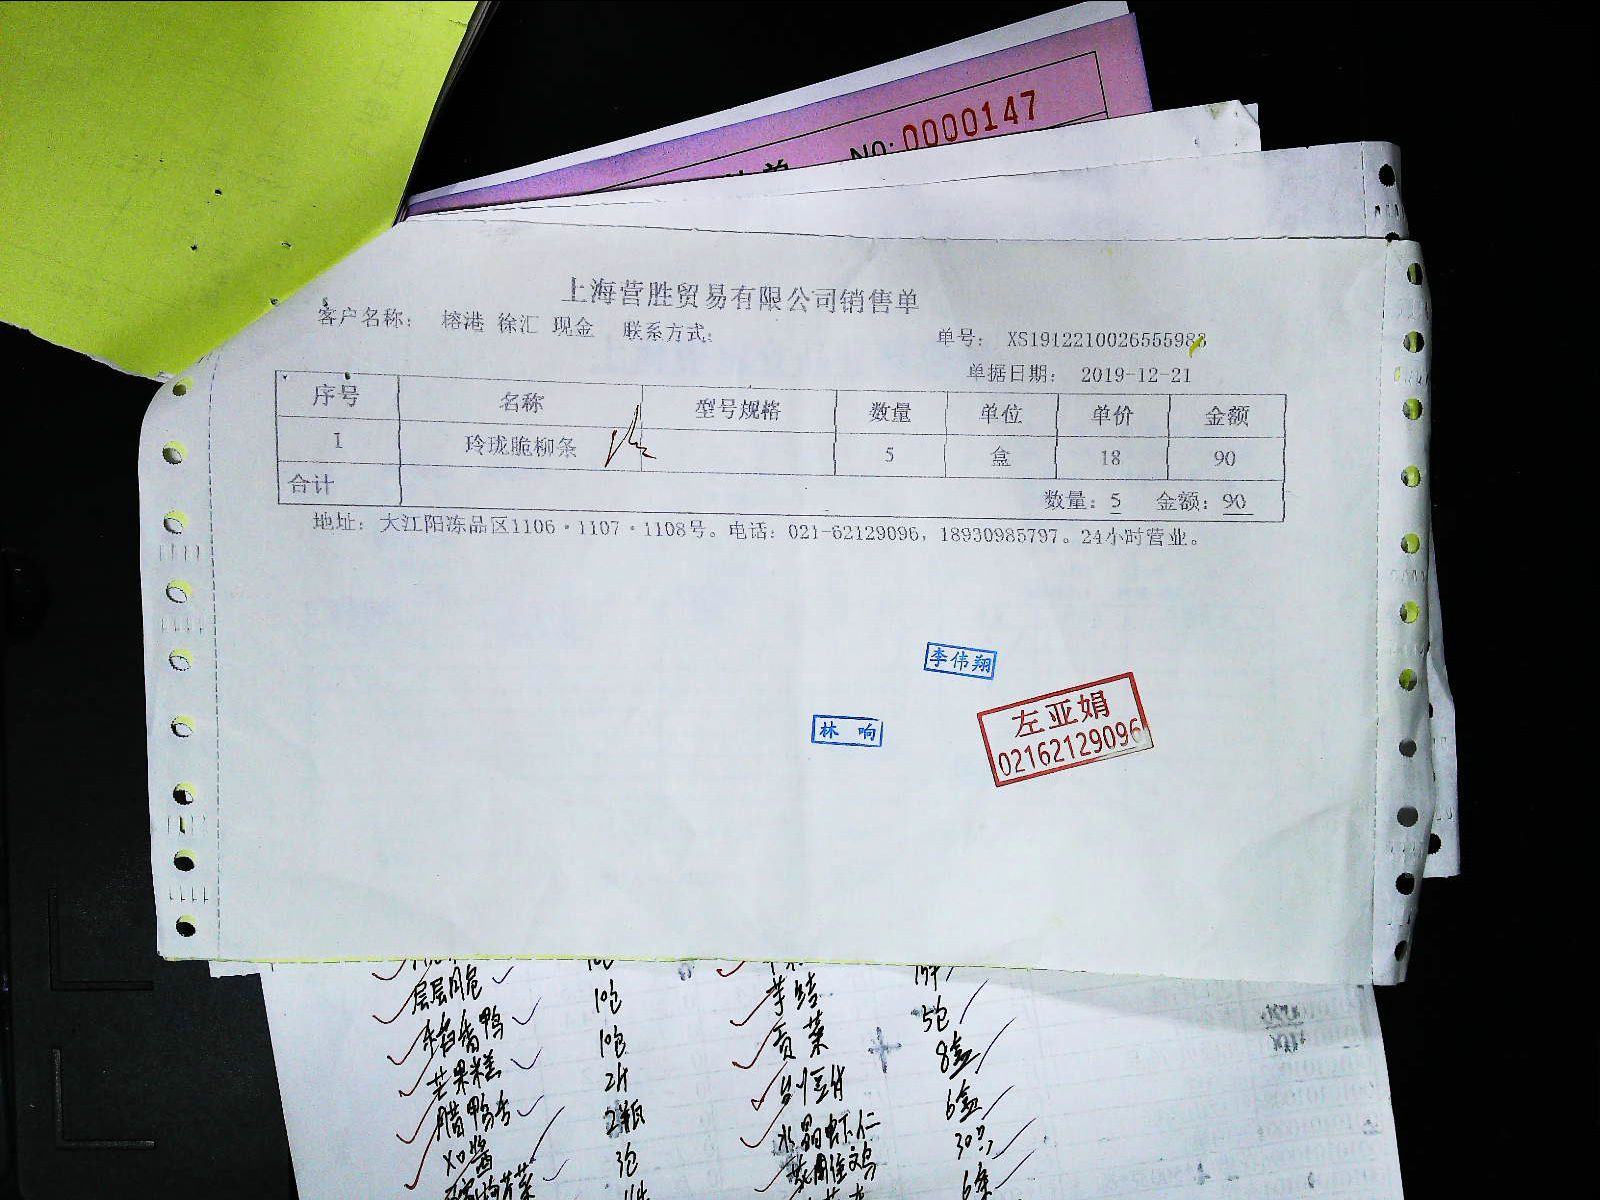 NO: 0000147
上海营胜贸易有限公司销售单
客户名称： 榕港 徐汇 现金 联系方式：
单号： XS1912210026555988
单据日期： 2019-12-21
序号 名称 型号规格 数量 单位 单价 金额
1 玲珑脆柳条 5 盒 18 90
合计 数量：5 金额：90
地址：大江阳冻品区1106·1107·1108号。电话：021-62129096，18930985797。24小时营业。
李伟翔
林 响
左亚娟
02162129096
层层肉包 10包 芋结 5包
10包 贡菜 8盒
芒果糕 2片 6盒
腊鸭舌 2瓶 水晶虾仁 30只
XO酱 3包 6条